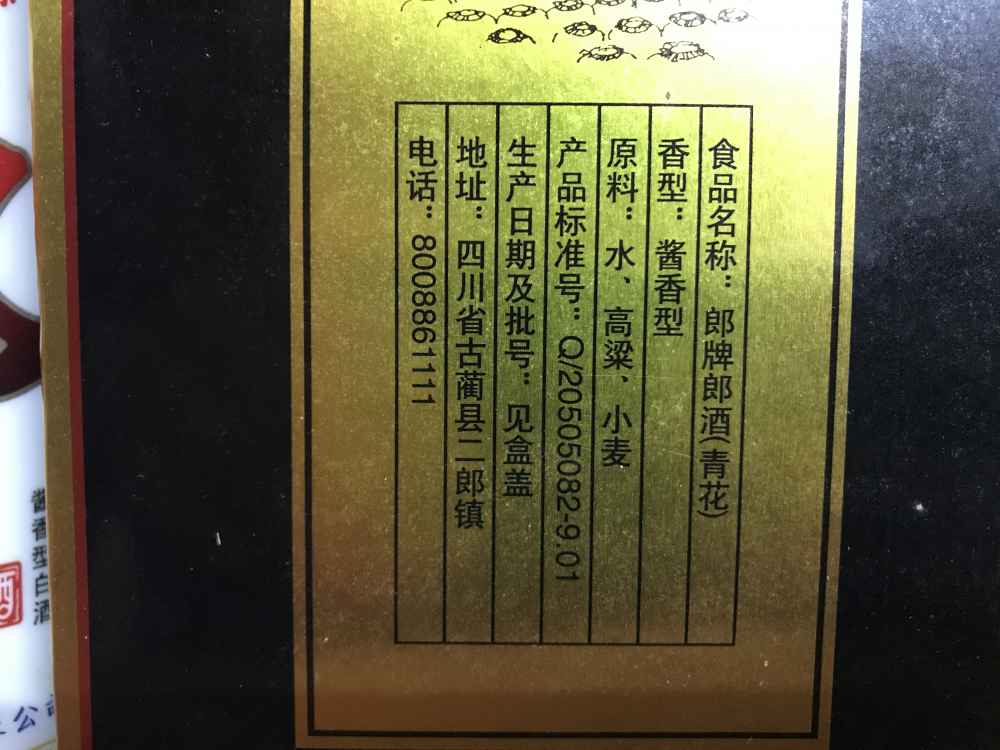 食品名称：郎牌郎酒(青花)
香型：酱香型
原料：水、高粱、小麦
产品标准号：Q/20505082-9.01
生产日期及批号：见盒盖
地址：四川省古蔺县二郎镇
电话：8008861111
酱香型白酒
酒
公司